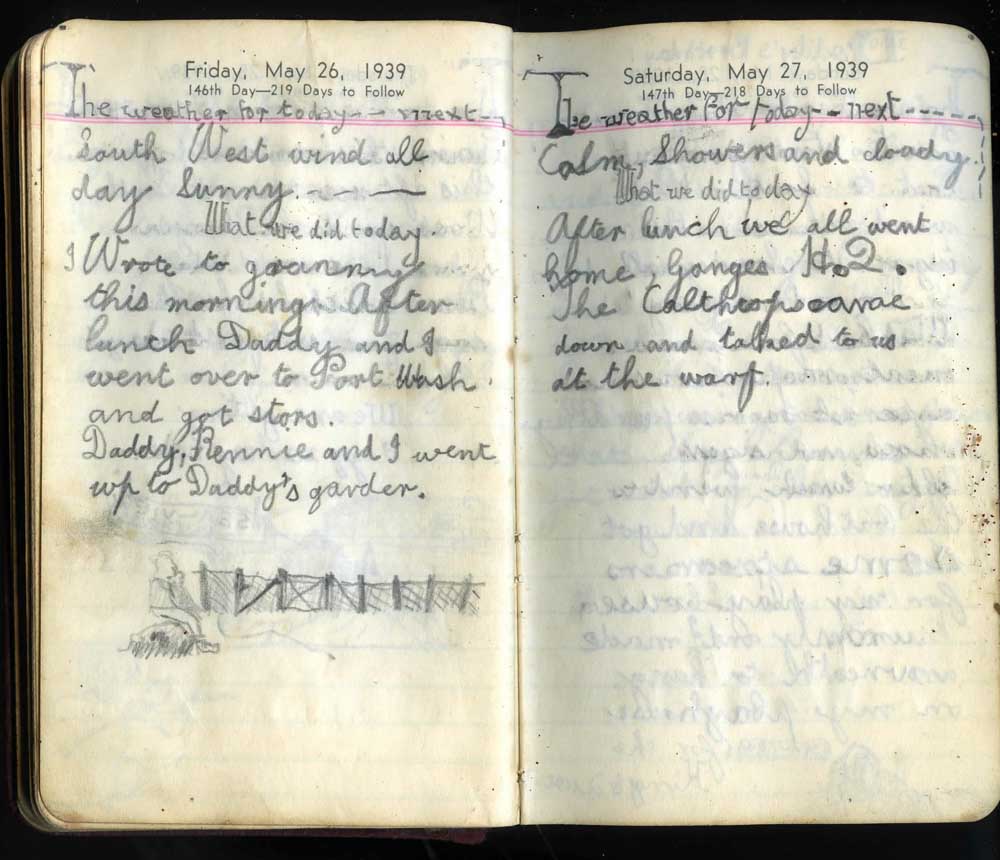 Friday, May 26, 1939
146th Day—219 Days to Follow
The weather for today-- nnext--
South West wind all
day Sunny.----
What we did today.
I Wrote to grannny
this morning. After
lunch Daddy and I
went over to Port Wash
and got stors.
Daddy, Rennie and I went
up to Daddy's garder.
Saturday, May 27, 1939
147th Day—218 Days to Follow
The weather For today-- next----
Calm, Showers and cloady
What we did today
After lunch we all went
home Ganges H.Q.
The Calthrops carae
down and talked to us
at the warf.